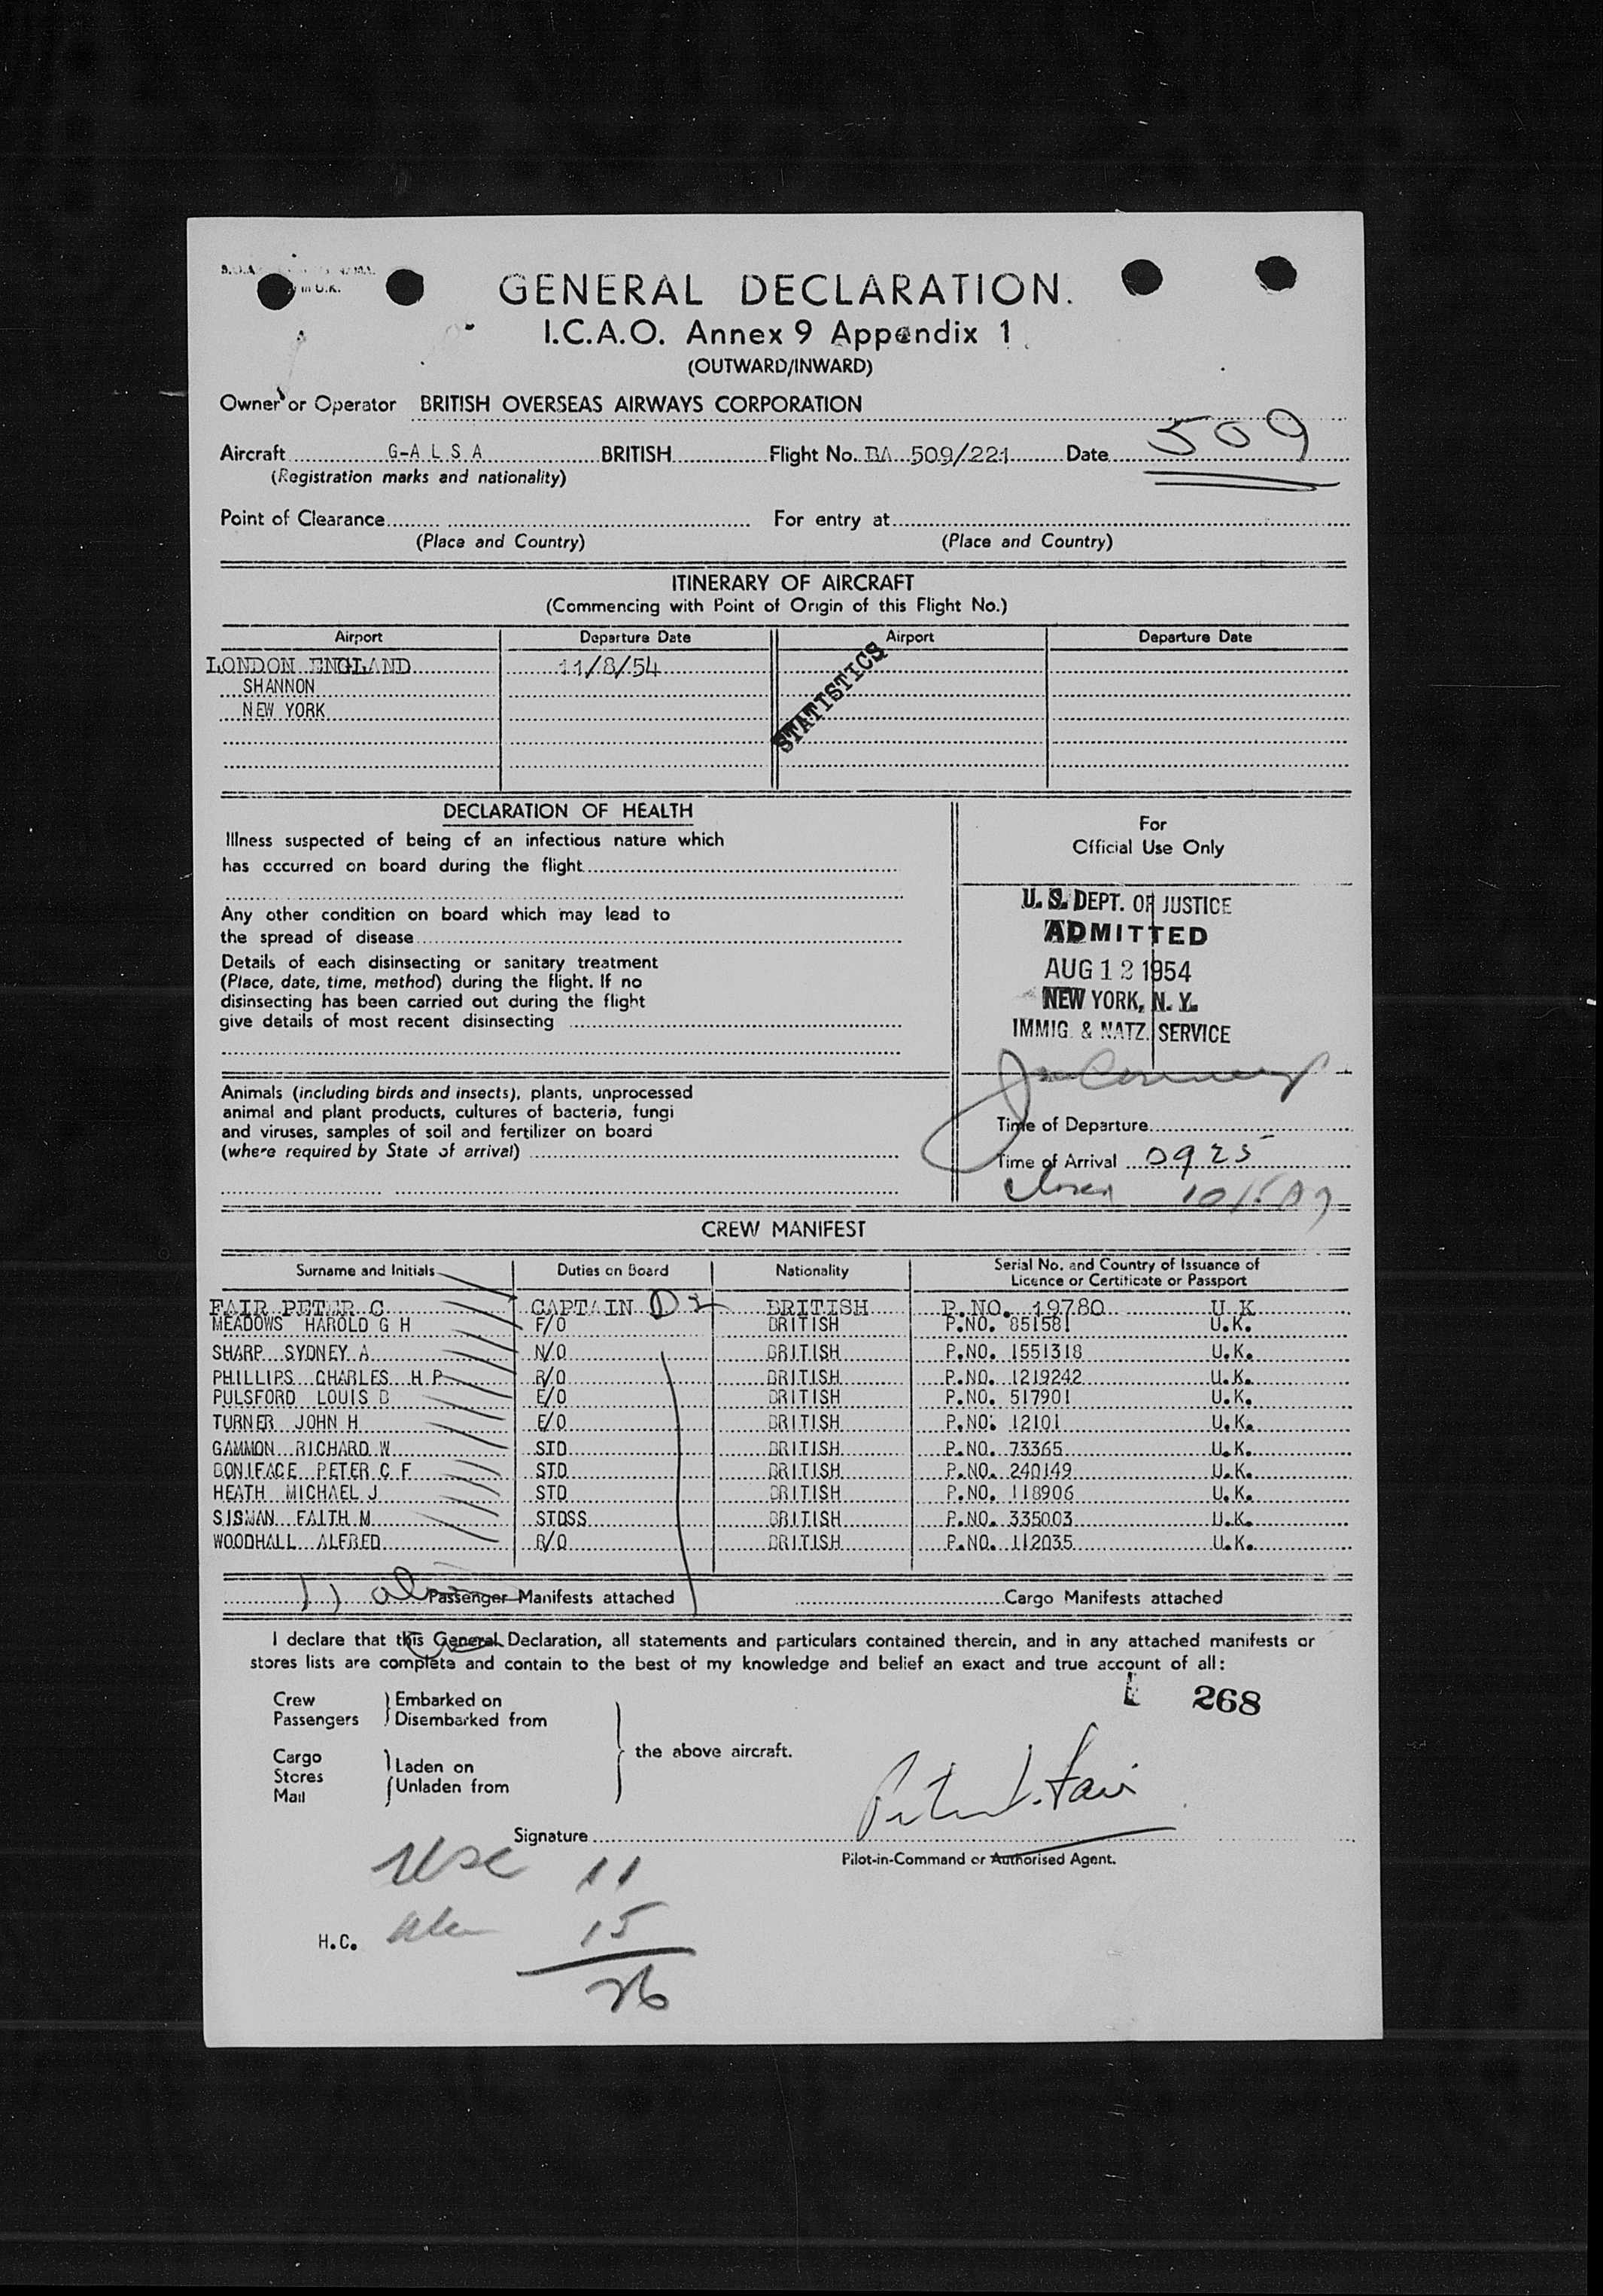 in U.K.
GENERAL DECLARATION.
I.C.A.O. Annex 9 Appendix 1
(OUTWARD/INWARD)
Owner or Operator BRITISH OVERSEAS AIRWAYS CORPORATION
Aircraft G-A L S A BRITISH Flight No. BA 509/221 Date 509
(Registration marks and nationality)
Point of Clearance For entry at
(Place and Country) (Place and Country)
ITINERARY OF AIRCRAFT
(Commencing with Point of Origin of this Flight No.)
Airport Departure Date Airport Departure Date
LONDON ENGLAND 11/8/54
SHANNON
NEW YORK
STATISTICS
DECLARATION OF HEALTH
Illness suspected of being of an infectious nature which
has occurred on board during the flight
Any other condition on board which may lead to
the spread of disease
Details of each disinsecting or sanitary treatment
(Place, date, time, method) during the flight. If no
disinsecting has been carried out during the flight
give details of most recent disinsecting
Animals (including birds and insects), plants, unprocessed
animal and plant products, cultures of bacteria, fungi
and viruses, samples of soil and fertilizer on board
(where required by State of arrival)
For
Official Use Only
U. S. DEPT. OF JUSTICE
ADMITTED
AUG 12 1954
NEW YORK, N. Y.
IMMIG. & NATZ. SERVICE
Time of Departure
Time of Arrival 0925
CREW MANIFEST
Surname and Initials Duties on Board Nationality Serial No. and Country of Issuance of
Licence or Certificate or Passport
FAIR PETER C CAPTAIN BRITISH P.NO. 19780 U.K
MEADOWS HAROLD G H F/O BRITISH P.NO. 851581 U.K.
SHARP SYDNEY A N/O BRITISH P.NO. 1551318 U.K.
PHILLIPS CHARLES H P R/O BRITISH P.NO. 1219242 U.K.
PULSFORD LOUIS B E/O BRITISH P.NO. 517901 U.K.
TURNER JOHN H E/O BRITISH P.NO. 12101 U.K.
GAMMON RICHARD W STD BRITISH P.NO. 73365 U.K.
BONIFACE PETER C F STD BRITISH P.NO. 240149 U.K.
HEATH MICHAEL J STD BRITISH P.NO. 118906 U.K.
SISMAN FAITH M STDSS BRITISH P.NO. 335003 U.K.
WOODHALL ALFRED R/O BRITISH P.NO. 112035 U.K.
11 Passenger Manifests attached Cargo Manifests attached
I declare that this General Declaration, all statements and particulars contained therein, and in any attached manifests or
stores lists are complete and contain to the best of my knowledge and belief an exact and true account of all:
268
Crew Embarked on
Passengers Disembarked from
the above aircraft.
Cargo Laden on
Stores
Mail Unladen from
Signature
Pilot-in-Command or Authorised Agent.
USC 11
H.C. 15
26